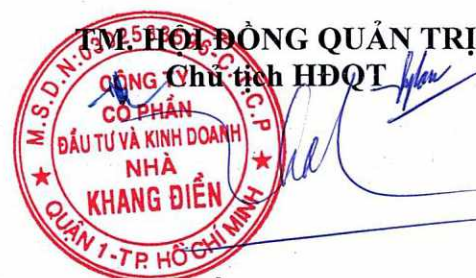 TM. HỘI ĐỒNG QUẢN TRỊ
Chủ tịch HĐQT
CÔNG TY
CỔ PHẦN
ĐẦU TƯ VÀ KINH DOANH
NHÀ
KHANG ĐIỀN
QUẬN 1 - TP. HỒ CHÍ MINH